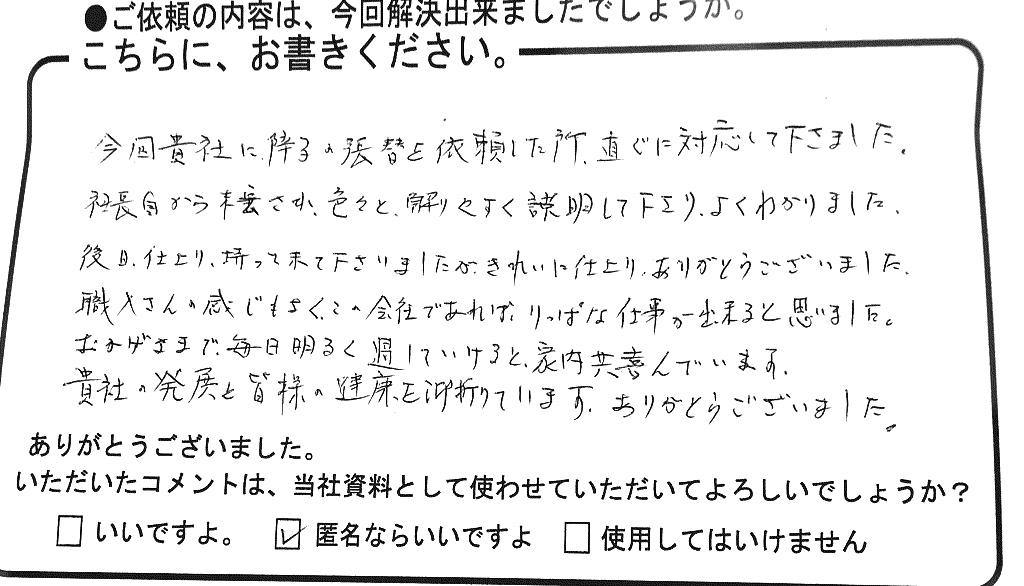 ●ご依頼の内容は、今回解決出来ましたでしょうか。
こちらに、お書きください。
今回貴社に障子の張替を依頼した所、直ぐに対応して下さました。
社長自から来られ、色々と、解りやすく説明して下さり、よくわかりました。
後日、仕上り、持って来て下さいましたが、きれいに仕上り、ありがとうございました。
職人さんの感じもよく、この会社であれば、りっぱな仕事が出来ると思いました。
おかげさまで、毎日明るく過していけると、家内共喜んでいます。
貴社の発展と皆様の健康を御祈りています。ありがとうございました。
ありがとうございました。
いただいたコメントは、当社資料として使わせていただいてよろしいでしょうか？
□ いいですよ。 ☑ 匿名ならいいですよ □ 使用してはいけません